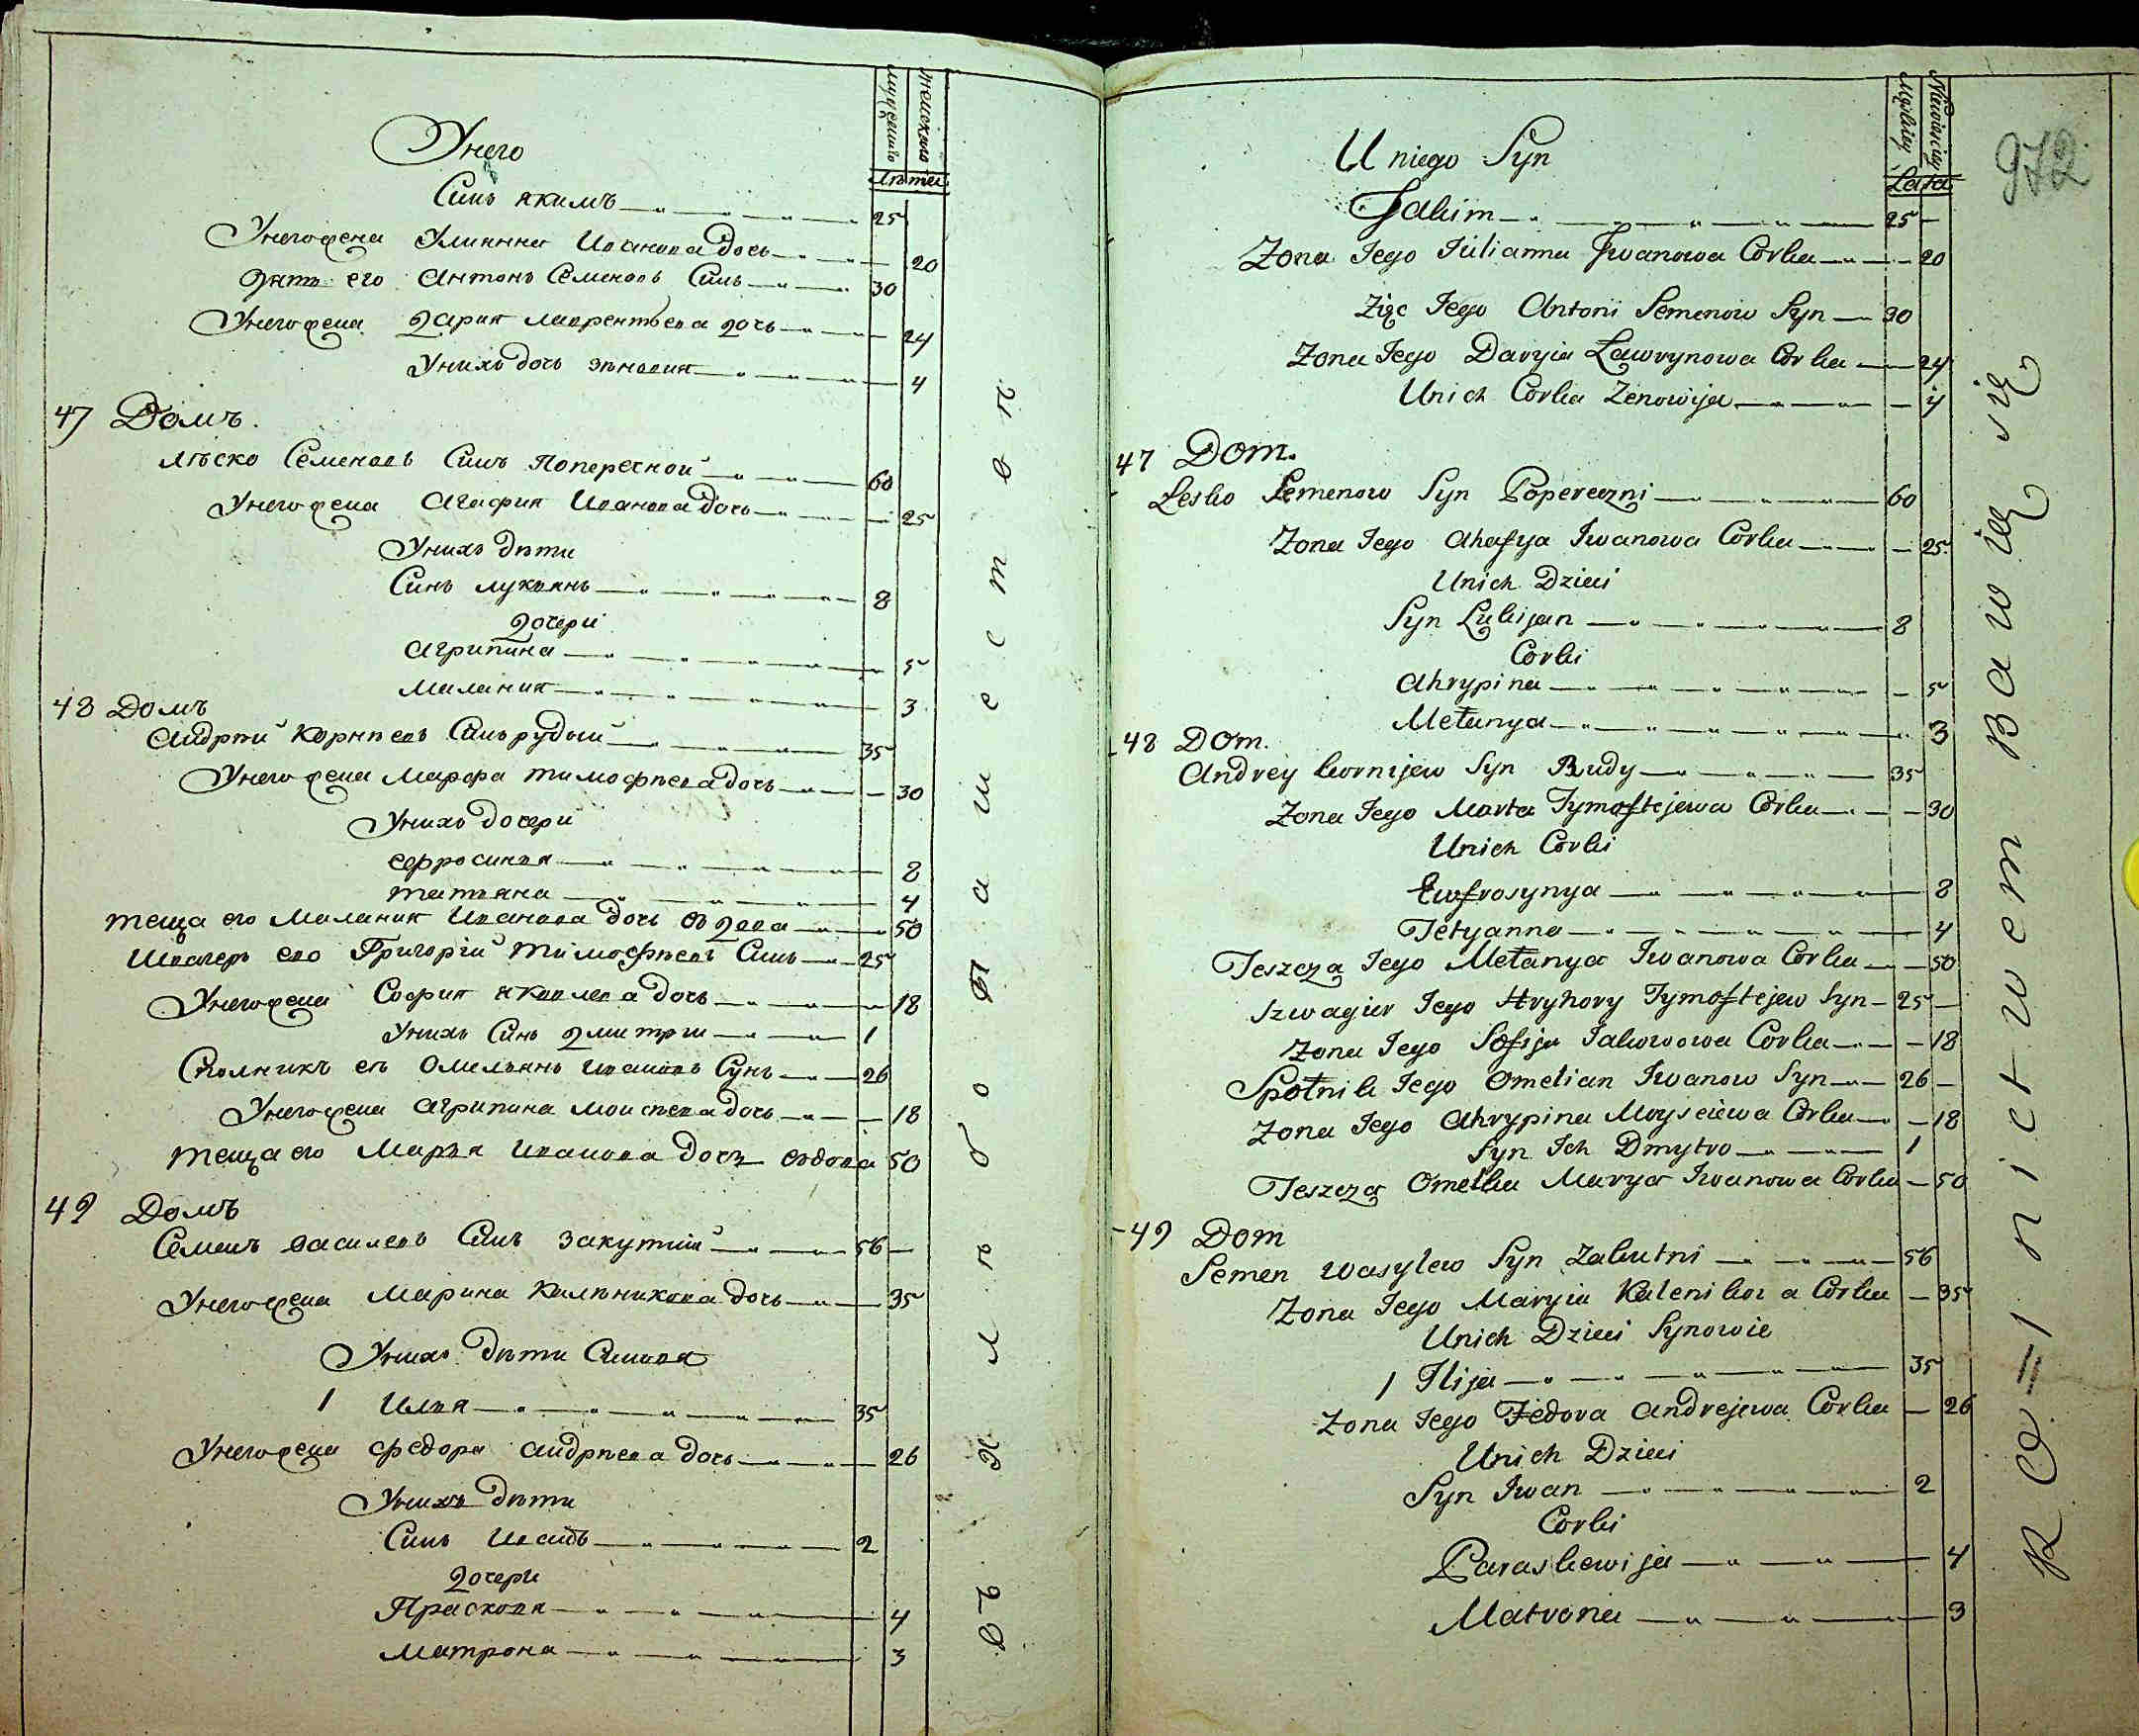 мужеска
женска
лѣта
Унего
Синъ якимъ 25
Унего жена Улияна Иванова дочь 20
Зять его Антонъ Семеновъ Синъ 30
Унего жена Дария лаврентьева дочь 24
Унихъ дочь зѣновия 4
47 Домъ.
лѣско Семеновъ Синъ Поперечной 60
Унего жена Агафия Иванова дочь 25
Унихъ дѣти
Синъ лукьянъ 8
дочери
агрипина 5
малания 3
48 Домъ
Андрѣй Корнѣевъ Синъ рудый 35
Унего жена Марфа тимофѣева дочь 30
Унихъ дочери
ефросиния 8
татьяна 4
теща его Малания Иванова дочь вдова 50
Швагеръ его Григорій тимофѣевъ Синъ 25
Унего жена София яковлева дочь 18
Унихъ Синъ дмитри 1
Сполникъ его Омельянъ Ивановъ Сунъ 26
Унего жена агрипина моисѣева дочь 18
теща его Марья Иванова дочь вдова 50
49 Домъ
Семенъ василевъ Синъ закутній 56
Унего жена Марина Калѣникова дочь 35
Унихъ дѣти Синовя
1 Илья 35
Унего жена федора андрѣева дочь 26
Унихъ дѣти
Синъ Иванъ 2
дочери
Прасковя 4
матрона 3
972
Męskiey
Niewieściey
Lata
U niego Syn
Jakim 25
Zona Jego Julianna Jwanowa Corka 20
Zięc Jego Antoni Semenow Syn 30
Zona Jego Daryia Ławrynowa Corka 24
Unich Corka Zenowija 4
47 Dom.
Lesko Semenow Syn Popereczni 60
Zona Jego Ahafya Jwanowa Corka 25
Unich Dzieci
Syn Lukijan 8
Corki
Ahrypina 5
Mełanya 3
48 Dom.
Andrey kornijew Syn Rudy 35
Zona Jego Marta Tymoftejewa Corka 30
Unich Corki
Ewfrosynya 8
Tetyanna 4
Teszcza Jego Mełanya Jwanowa Corka 50
Szwagier Jego Hryhory Tymoftejew Syn 25
Zona Jego Sofija Jakowowa Corka 18
Społnik Jego Omelian Jwanow Syn 26
Zona Jego Ahrypina Moyseiewa Corka 18
Syn Jch Dmytro 1
Teszcza Omelka Marya Jwanowa Corka 50
49 Dom
Semen wasylew Syn Zakutni 56
Zona Jego Maryia Kalenikowa Corka 35
Unich Dzieci Synowie
1 Ilija 35
Zona Jego Fedora Andrejewa Corka 26
Unich Dzieci
Syn Jwan 2
Corki
Paraskewija 4
Matrona 3